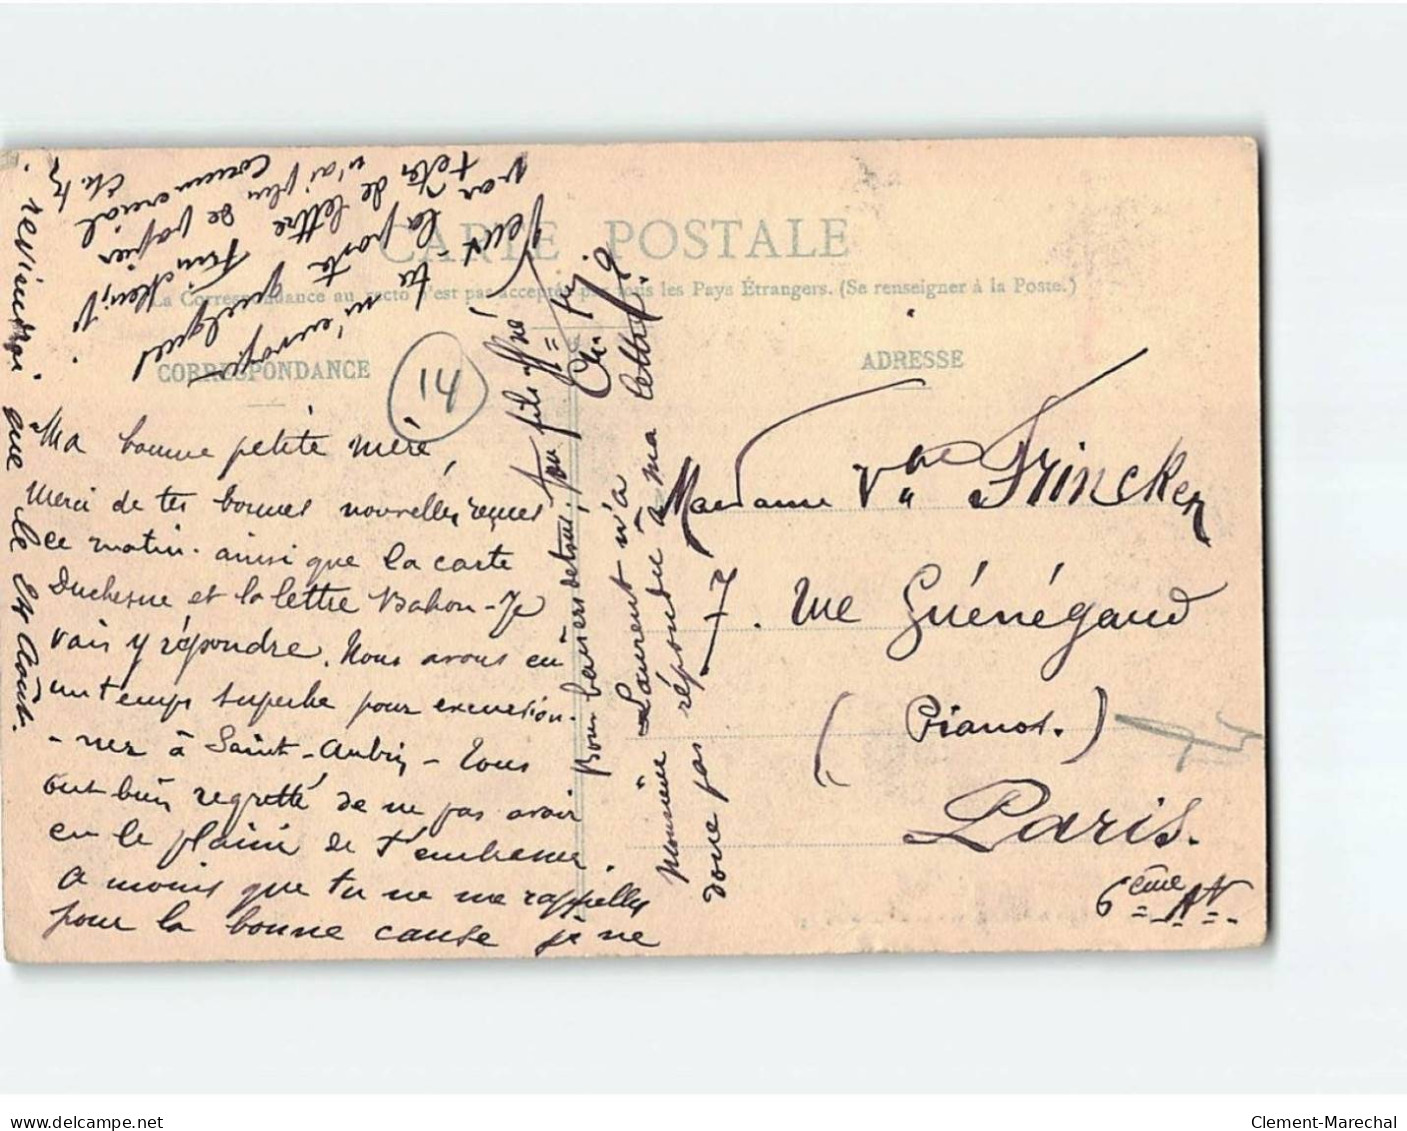 CARTE POSTALE
La Correspondance au recto n'est pas acceptée par tous les Pays Étrangers. (Se renseigner à la Poste.)
CORRESPONDANCE
ADRESSE
14
Ma bonne petite mère,
Merci de tes bonnes nouvelles reçues
ce matin. ainsi que la carte
Duchesne et la lettre Bahon - Je
vais y répondre. Nous avons eu
un temps superbe pour excursion-
-ner à Saint-Aubin - Tous
ont bien regretté de ne pas avoir
eu le plaisir de t'embrasser.
A moins que tu ne me rappelles
pour la bonne cause je ne
reviendrai que le 24 Août.
Bons baisers de tous. Ton fils
Monsieur Laurent n'a
donc pas répondu à ma lettre ?
Peux-tu m'envoyer quelques
têtes de lettre
n'ai plus de papier
commercial
Madame Vve Frincker
7. rue Guénégaud
(Pianos.)
Paris.
6ème Arrt.
delcampe.net
Clement-Marechal